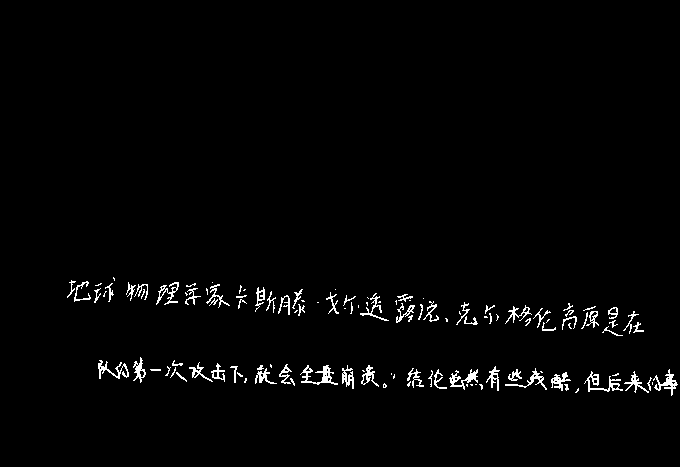 地球物理学家卡斯滕·戈尔透露说、克尔格伦高原是在
队的第一次攻击下,就会全盘崩溃。"结论虽然有些残酷,但后来的事